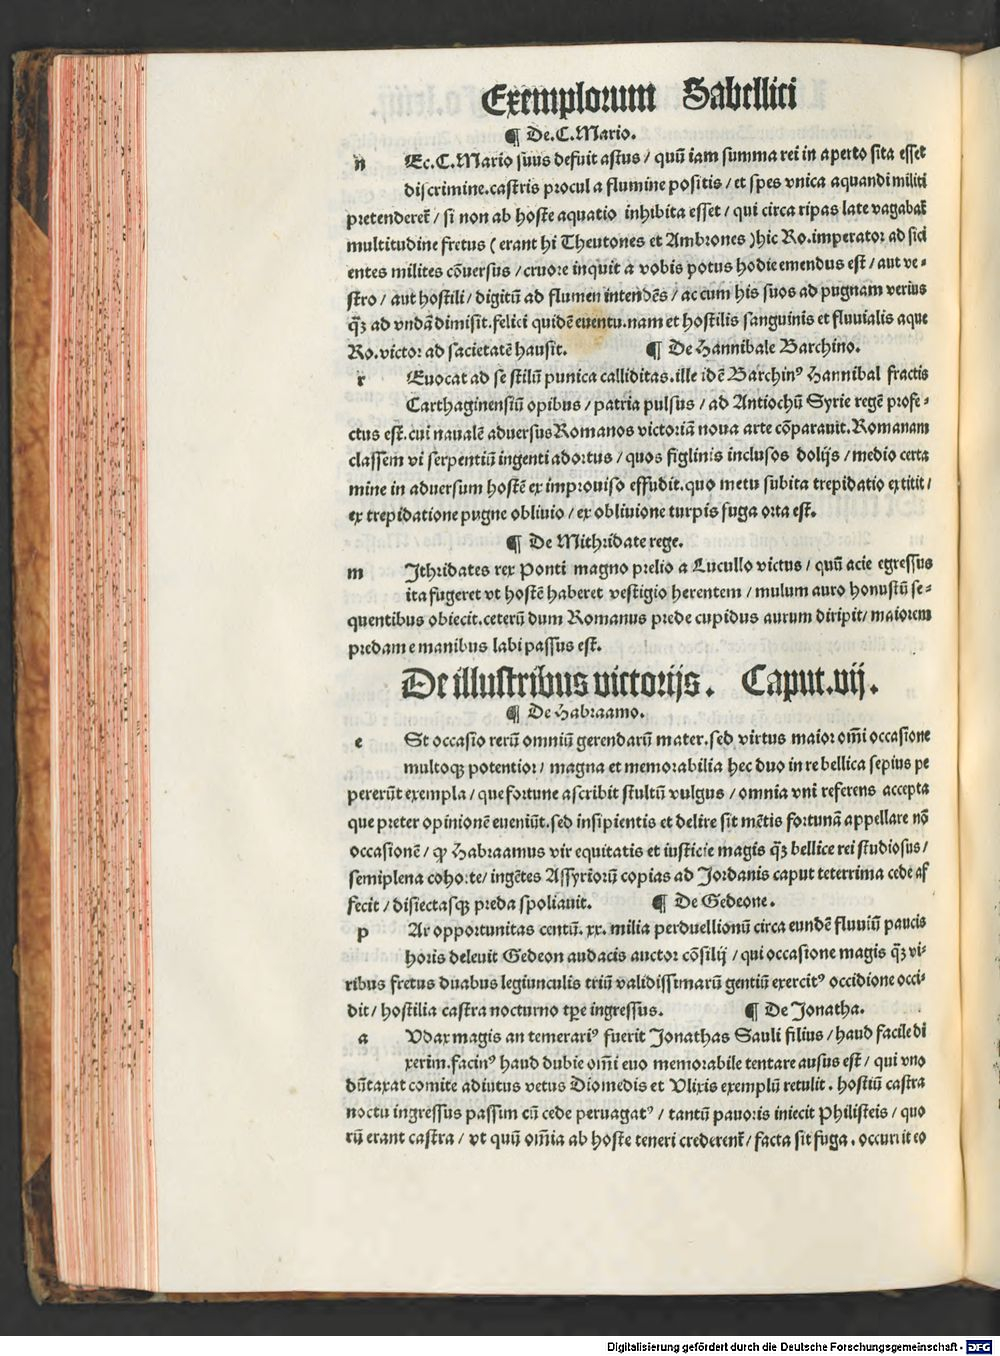 Exemplorum Sabellici
¶ De.C.Mario.
n Ec.C.Mario suus defuit astus / quū iam summa rei in aperto sita esset
discrimine.castris procul a flumine positis / et spes vnica aquandi militi
pretenderet᷑ / si non ab hoste aquatio inhibita esset / qui circa ripas late vagabat᷑
multitudine fretus ( erant hi Theutones et Ambrones ) hic Ro.imperator ad siti
entes milites cōuersus / cruore inquit a vobis potus hodie emendus est / aut ve-
stro / aut hostili / digitū ad flumen intendēs / ac cum his suos ad pugnam verius
q̄ꝫ ad vndā dimisit.felici quidē euentu.nam et hostilis sanguinis et fluuialis aque
Ro.victor ad sacietatē hausit. ¶ De Hannibale Barchino.
r Euocat ad se stilū punica calliditas.ille idē Barchinꝰ Hannibal fractis
Carthaginensiū opibus / patria pulsus / ad Antiochū Syrie regē profe-
ctus est.cui naualē aduersus Romanos victoriā noua arte cōparauit.Romanam
classem vi serpentiū ingenti adortus / quos figlinis inclusos dolijs / medio certa
mine in aduersum hostē ex improuiso effudit.quo metu subita trepidatio extitit /
ex trepidatione pugne obliuio / ex obliuione turpis fuga orta est.
¶ De Mithridate rege.
m Ithridates rex Ponti magno prelio a Lucullo victus / quū acie egressus
ita fugeret vt hostē haberet vestigio herentem / mulum auro honustū se-
quentibus obiecit.ceterū dum Romanus prede cupidus aurum diripit / maiorem
predam e manibus labi passus est.
De illustribus victorijs. Caput.vij.
¶ De Habraamo.
e St occasio rerū omniū gerendarū mater.sed virtus maior om̄i occasione
multoqꝫ potentior / magna et memorabilia hec duo in re bellica sepius pe
pererūt exempla / que fortune ascribit stultū vulgus / omnia vni referens accepta
que preter opinionē eueniūt.sed insipientis et delire sit mētis fortunā appellare nō
occasionē / ꝙ Habraamus vir equitatis et iusticie magis q̄ꝫ bellice rei studiosus /
semiplena cohorte / ingētes Assyriorū copias ad Jordanis caput teterrima cede af
fecit / disiectasqꝫ preda spoliauit. ¶ De Gedeone.
p Ar opportunitas centū. xx. milia perduellionū circa eundē fluuiū paucis
horis deleuit Gedeon audacis auctor cōsilij / qui occasione magis q̄ꝫ vi-
ribus fretus duabus legiunculis triū validissimarū gentiū exercitꝰ occidione occi-
dit / hostilia castra nocturno tp̄e ingressus. ¶ De Jonatha.
a Vdax magis an temerariꝰ fuerit Jonathas Sauli filius / haud facile di
xerim.facinꝰ haud dubie om̄i euo memorabile tentare ausus est / qui vno
dūtaxat comite adiutus vetus Diomedis et Vlixis exemplū retulit . hostiū castra
noctu ingressus passim cū cede peruagatꝰ / tantū pauoris iniecit Philisteis / quo
rū erant castra / vt quū om̄ia ab hoste teneri crederent᷑ / facta sit fuga . occurrit eo
Digitalisierung gefördert durch die Deutsche Forschungsgemeinschaft - DFG